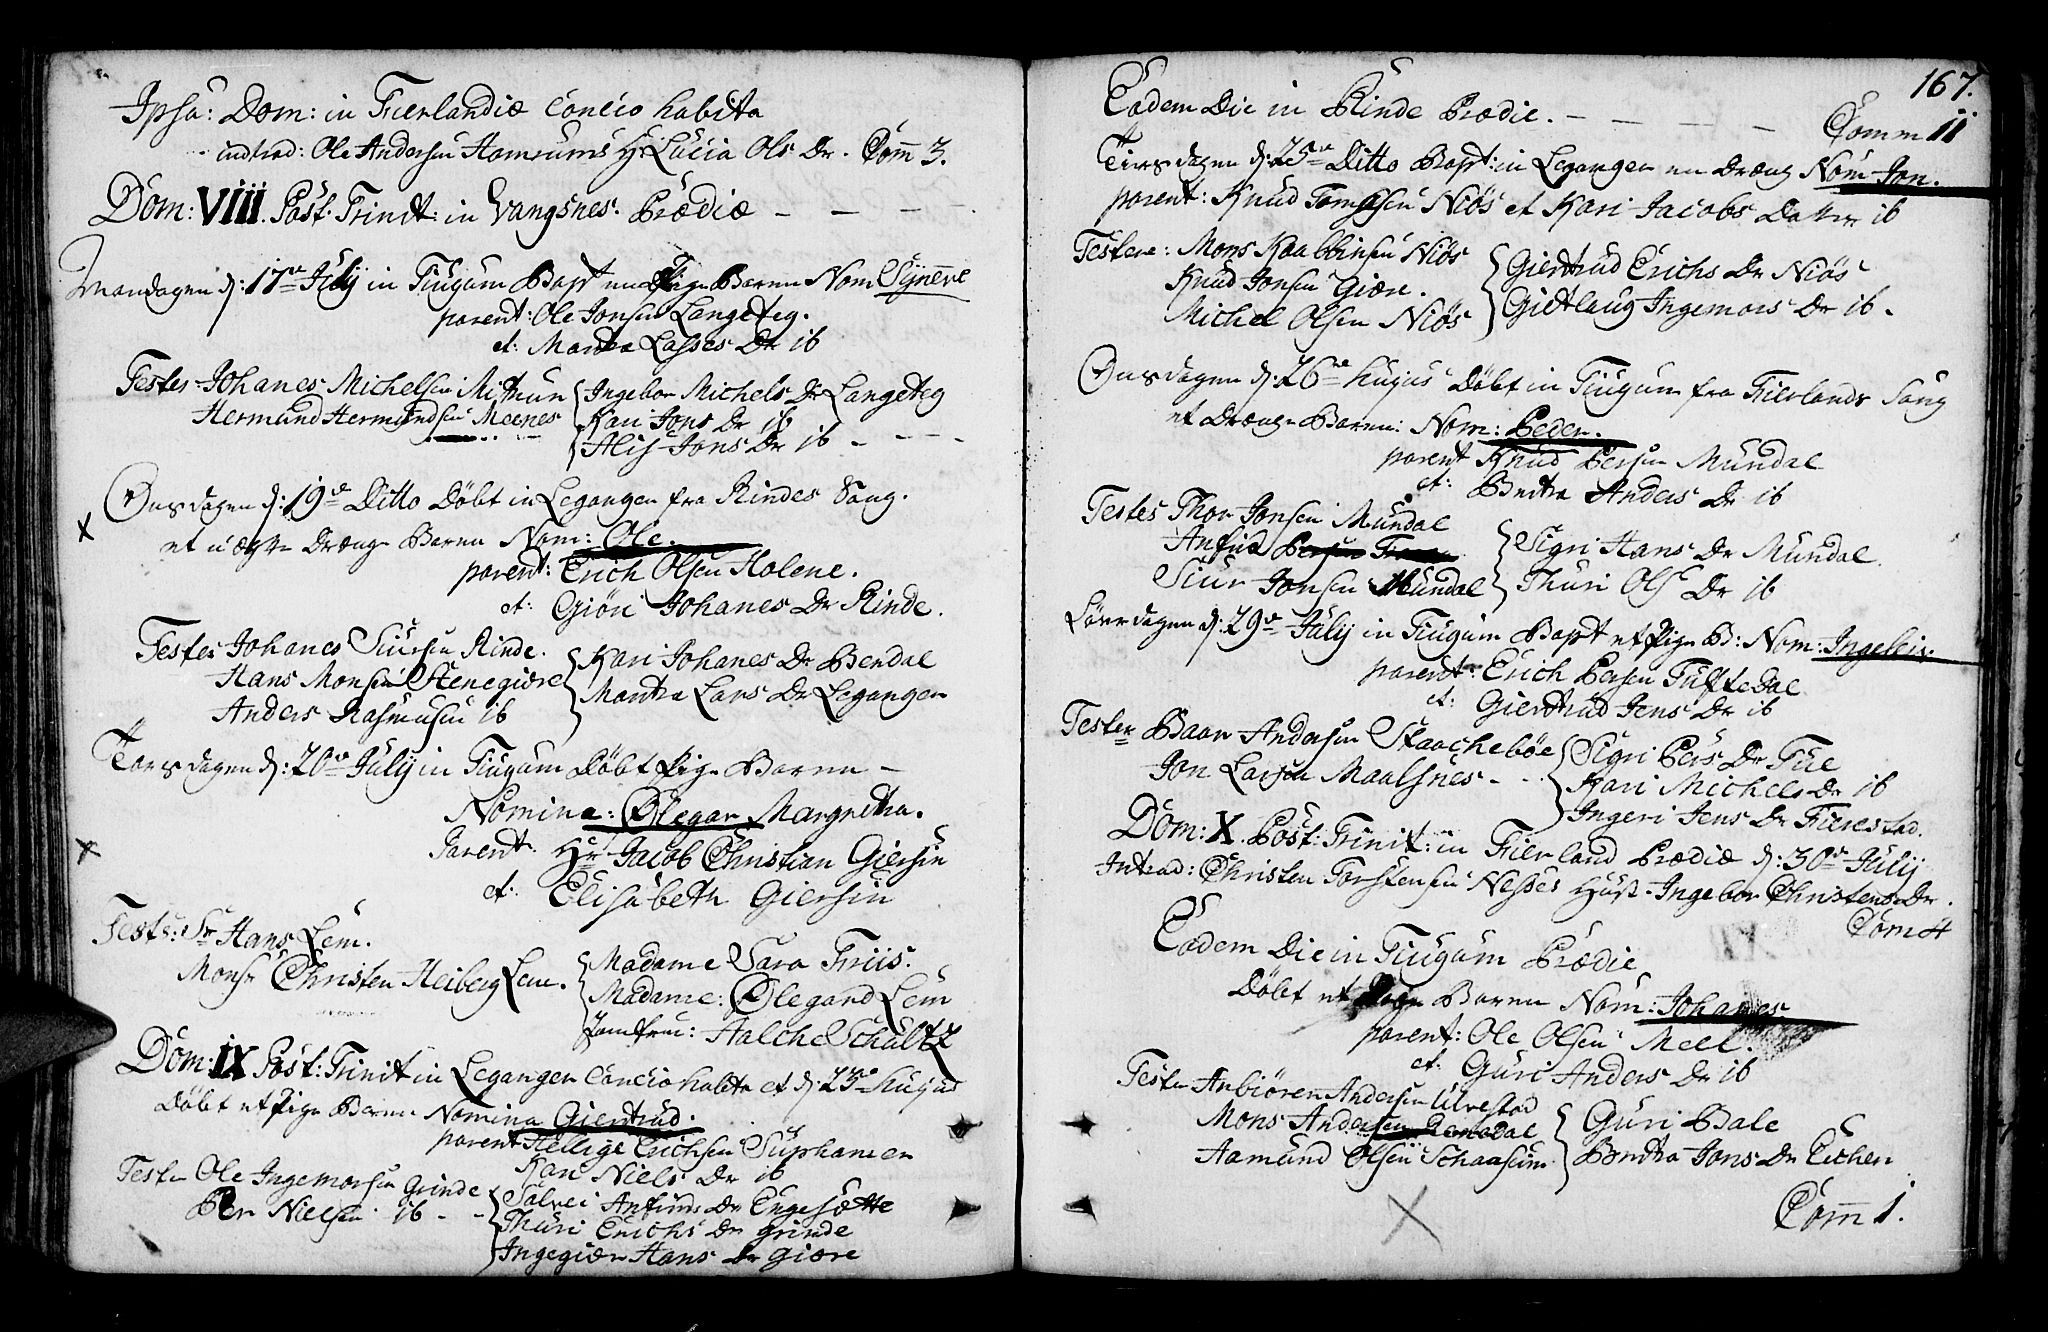 Ipsa: Dom: in Fierlandiæ Concio habita
introd: Ole Andersen Hamrums H: Lucia Ols Dr. Com̄ 3.
Dom: VIII. Post: Trinit: in Vangsnes. Prædiæ — — — —
Mandagen d: 17de Julij in Tiugum Bapt en Pige Barn Nom Synneve
parent: Ole Jonsen Langeteg.
et: Martha Lasses Dr ib
Testes Johanes Michelsen Mithun
Hermund Hermundsen Meenes
Ingebor Michels Dr Langeteg
Kari Jons Dr ib
Alis Jons Dr ib - - - -
Onsdagen d: 19de Ditto Döbt in Legangen fra Rindes Song.
et uægte Dreng Barn Nom: Ole.
parent: Erich Olsen Holene.
et: Giöri Johanes Dr Rinde.
Testes Johanes Siursen Rinde.
Hans Monsen Stenegiöre
Anders Rasmusen ib
Kari Johanes Dr Bendal
Martha Lars Dr Legangen
Torsdagen d: 20de Julij in Tiugum Döbt Pige Barn —
Nomine: Ølegar Margretha.
Parent: Hr Jacob Christian Giersin
et: Elisabeth Giersin
Test: Sr Hans Lem.
Monsr Christen Heiberg Lem.
Madame Sara Friis.
Madame: Ølegard Lem
Jomfru: Aalche Schultz
Dom: IX Post: Trinit in Legangen Concio habita et d: 23de hujus
Döbt et Pige Barn Nomina Giertrud.
parent Hellige Erichsen Suphamer
Kari Niels Dr ib
Testes Ole Ingemorsen Grinde
Per Nielsen ib - -
Solvei Anfinds Dr Engesætte
Thuri Erichs Dr Grinde
Ingegier Hans Dr Giøre
167.
Eadem Die in Rinde Prædic. — — — — Comm 11
Tirsdagen d: 25de Ditto Bapt: in Legangen en Dreng Nom Jon.
parent: Knud Tomasen Niös et Kari Jacobs Datter ib
Testere: Mons Kaabbinsen Niös
Knud Jonsen Giøre.
Michel Olsen Niös
Giertrud Erichs Dr Niös
Giertlaug Ingemors Dr ib.
Onsdagen d: 26de hujus Döbt in Tiugum fra Fierlands Song
et Drenge Barn: Nom: Peder.
parent Knud Persen Mundal
et: Brita Anders Dr ib
Testes Thor Jonsen Mundal
Anfind Persen
Siur Jonsen Mundal
Sigri Hans Dr Mundal.
Thuri Ols Dr ib
Löverdagen d: 29de Julij in Tiugum Bapt et Pige B: Nom: Ingeleir.
parent: Erich Persen Tufte Dal
et: Giertrud Jens Dr ib
Testes Baar Andersen Staachebøe
Jon Larsen Maalsnes - -
Sigri Pers Dr Tue
Kari Michels Dr ib
Ingeri Jens Dr Fierestad.
Dom: X. Post: Trinit: in Fierland Prædiæ d: 30de Julij
Introd: Christen Torstensen Nesses Hust. Ingebor Christens Dr.
Com 4
Eadem Die in Tiugum Prædic
Döbt et Barn Nom: Johanes
parent: Ole Olsen Meel.
et: Guri Anders Dr ib
Testes Anbiören Andersen Ulvestad
Mons Andersen
Aamund Olsen Schaasum
Guri Bale
Brita Jons Dr Eichen
Com̄ 1.